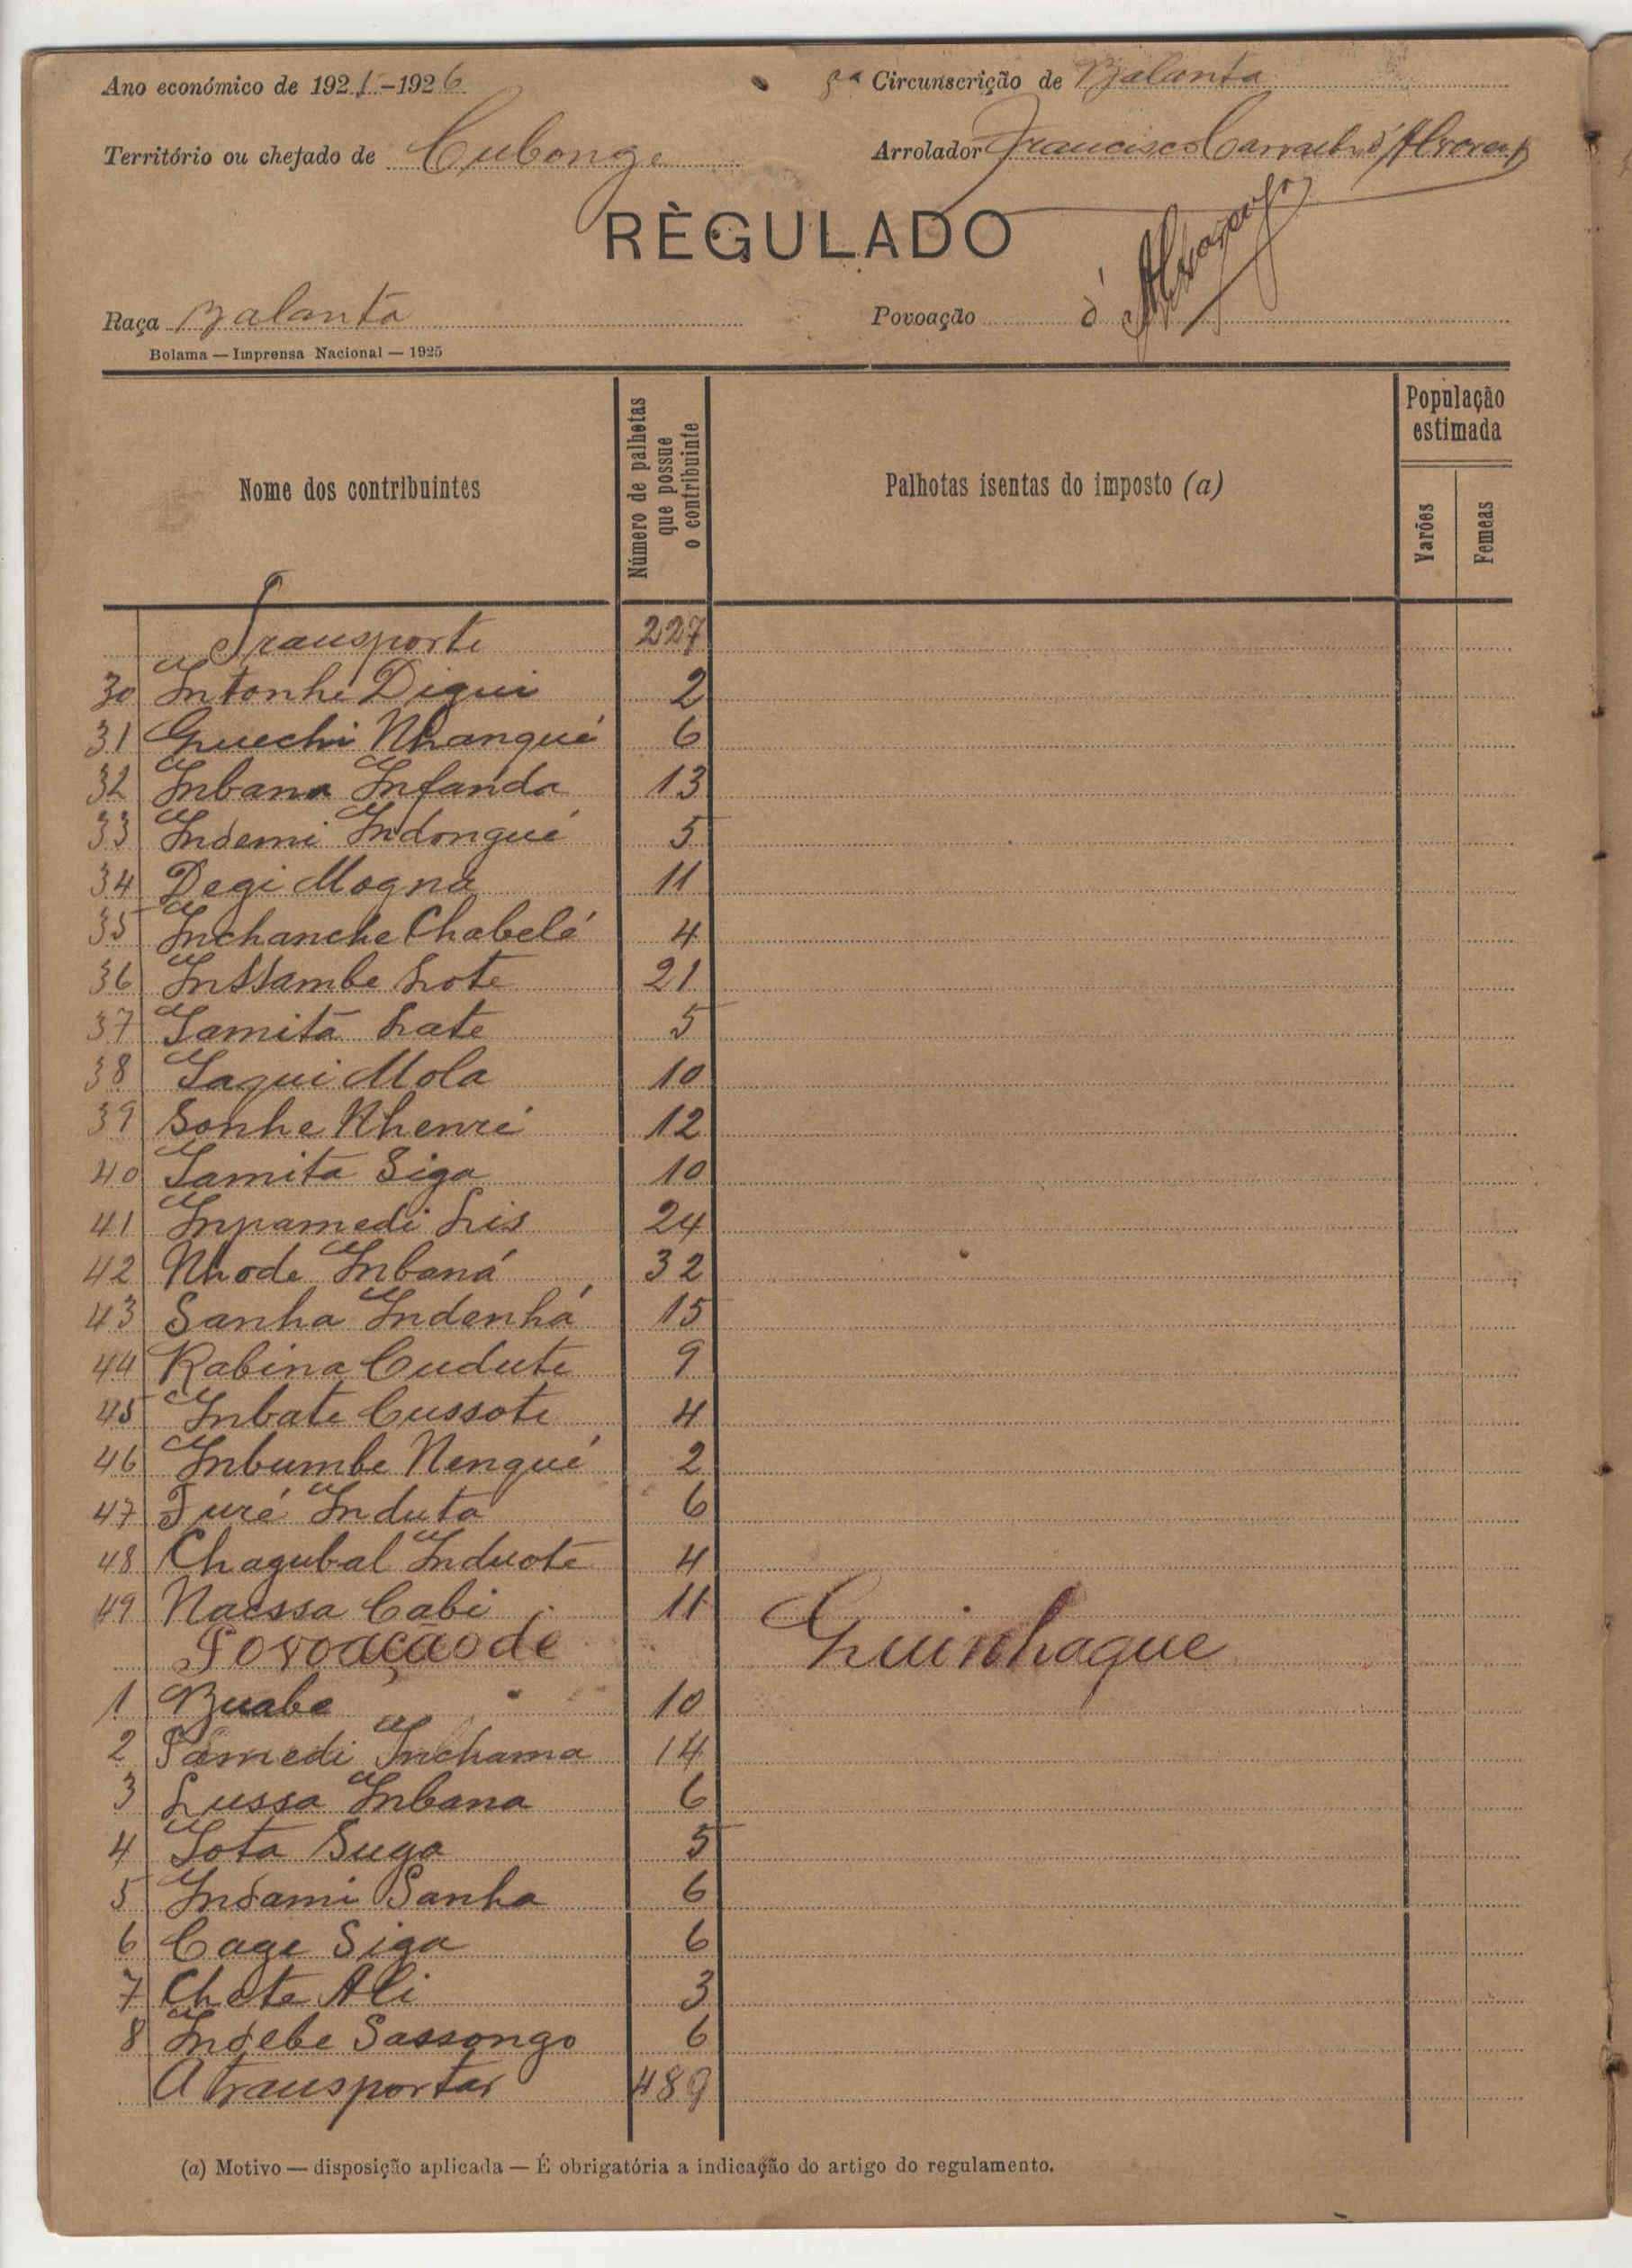 Ano económico de 192 -1926 Circunscrição de Balanta
Território ou chefado de Cubonge Arrolador Francisco Carvalho d'Alvarenga
RÈGULADO
Raça Balanta Povoação d'Alvarenga
Bolama — Imprensa Nacional — 1925
Nome dos contribuintes Número de palhotas que possue o contribuinte Palhotas isentas do imposto (a) População estimada
Varões Femeas
Transporte 227
30 Intonhe Digui 2
31 Guechi Nhangué 6
32 Inbana Infanda 13
33 Indemi Indongué 5
34 Degi Mogna 11
35 Inchanche Chabelé 4
36 Inssambe Lote 21
37 Tamitá Late 5
38 Tagui Mola 10
39 Sonhe Nhenré 12
40 Tamita Siga 10
41 Inpamedi Lis 24
42 Nhode Inbaná 32
43 Sanha Indenhá 15
44 Rabina Cudute 9
45 Inbate Cussote 4
46 Inbumbe Nengué 2
47 Turé Induta 6
48 Chagubal Induote 4
49 Naessa Cabi 11
Povoação de Guinhaque
1 Buabe 10
2 Pamedi Inchama 14
3 Lussa Inbana 6
4 Tota Suga 5
5 Indami Sanha 6
6 Cage Siga 6
7 Chete Ali 3
8 Indebe Sassongo 6
A transportar 489
(a) Motivo — disposição aplicada — É obrigatória a indicação do artigo do regulamento.